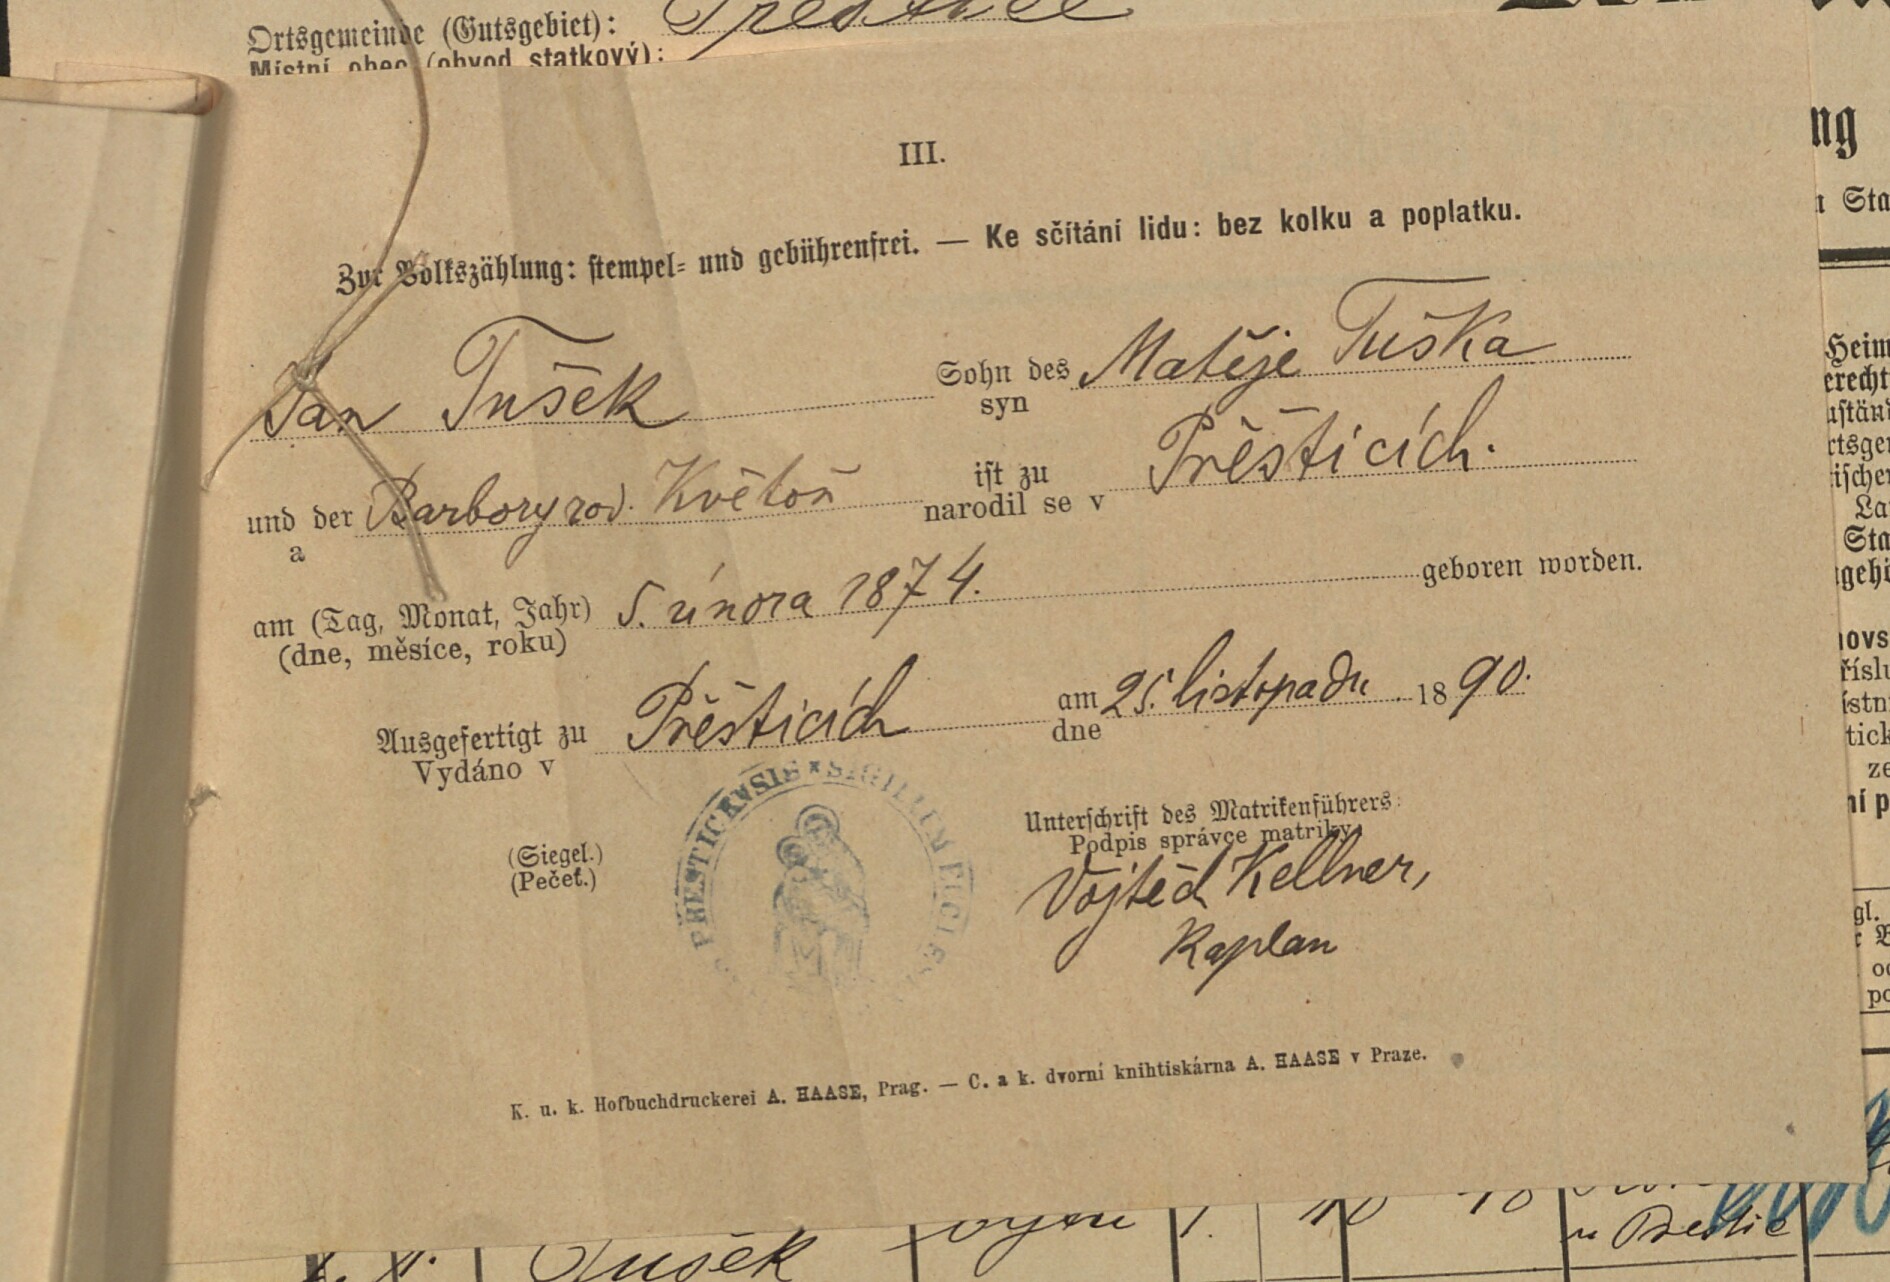 Ortsgemeinde (Gutsgebiet): Přeštice
Místní obec (obvod statkový):
III.
Zur Volkszählung: stempel- und gebührenfrei. — Ke sčítání lidu: bez kolku a poplatku.
Jan Tušek Sohn des Matěje Tuška
syn
und der Barbory rod. Květoň ist zu Přěšticích.
a narodil se v
am (Tag, Monat, Jahr) 5. února 1874. geboren worden.
(dne, měsíce, roku)
Ausgefertigt zu Přěšticích am 25. listopadu 1890.
Vydáno v dne
(Siegel.)
(Pečeť.)
PŘESTICENSIS * SIGILLUM ECCLE
Unterschrift des Matrikenführers:
Podpis správce matriky
Vojtěch Kellner,
Kaplan
K. u. k. Hofbuchdruckerei A. HAASE, Prag. — C. a k. dvorní knihtiskárna A. HAASE v Praze.
ng
Sta
Heim
La
Sta
ní p
gl.
Tušek
1. 10 90
u Přeštic